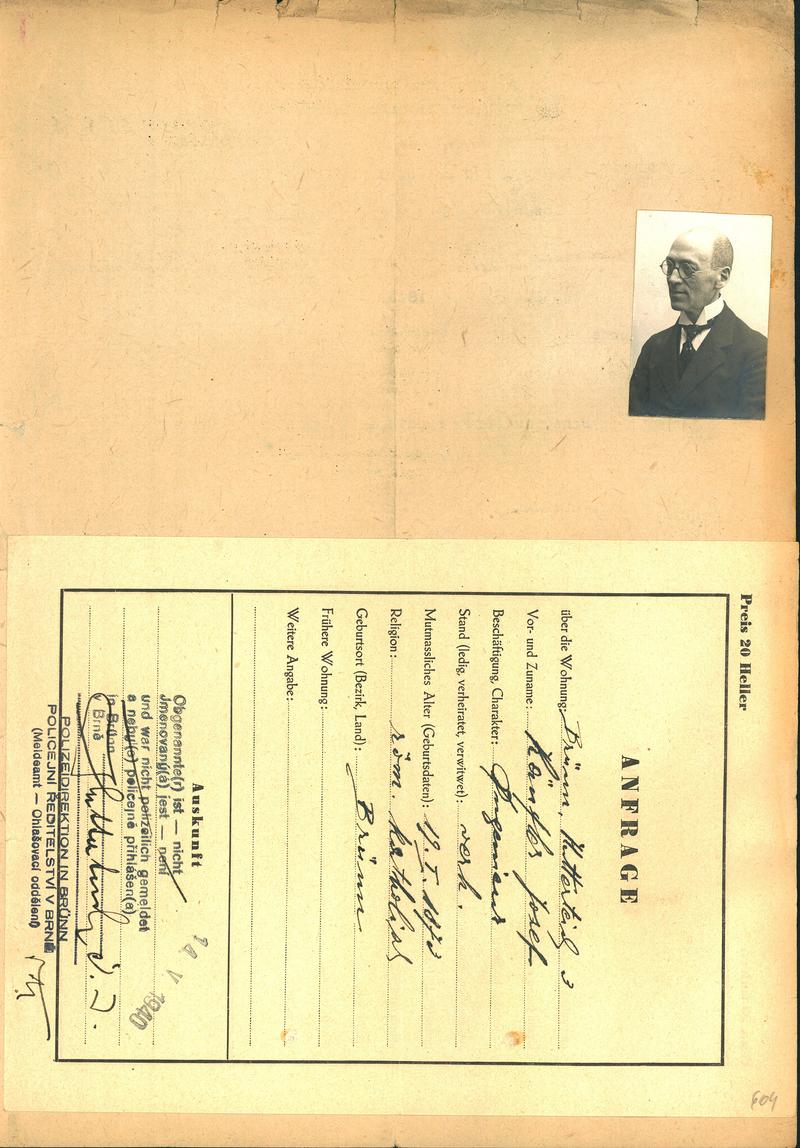 Preis 20 Heller
ANFRAGE
über die Wohnung: Brünn, 3
Vor- und Zuname: Josef
Beschäftigung, Charakter: Ingenieur
Stand (ledig, verheiratet, verwitwet): verh.
Mutmassliches Alter (Geburtsdaten):
Religion: röm. katholisch
Geburtsort (Bezirk, Land): Brünn
Frühere Wohnung:
Weitere Angabe:
Auskunft
V 1940
Obgenannte(r) ist — nicht
Jmenovaný(á) jest — není
und war nicht polizeilich gemeldet
a nebyl(a) policejně přihlášen(a)
in Brünn
v Brně
POLIZEIDIREKTION IN BRÜNN
POLICEJNÍ ŘEDITELSTVÍ V BRNĚ
(Meldeamt — Ohlašovací oddělení)
604